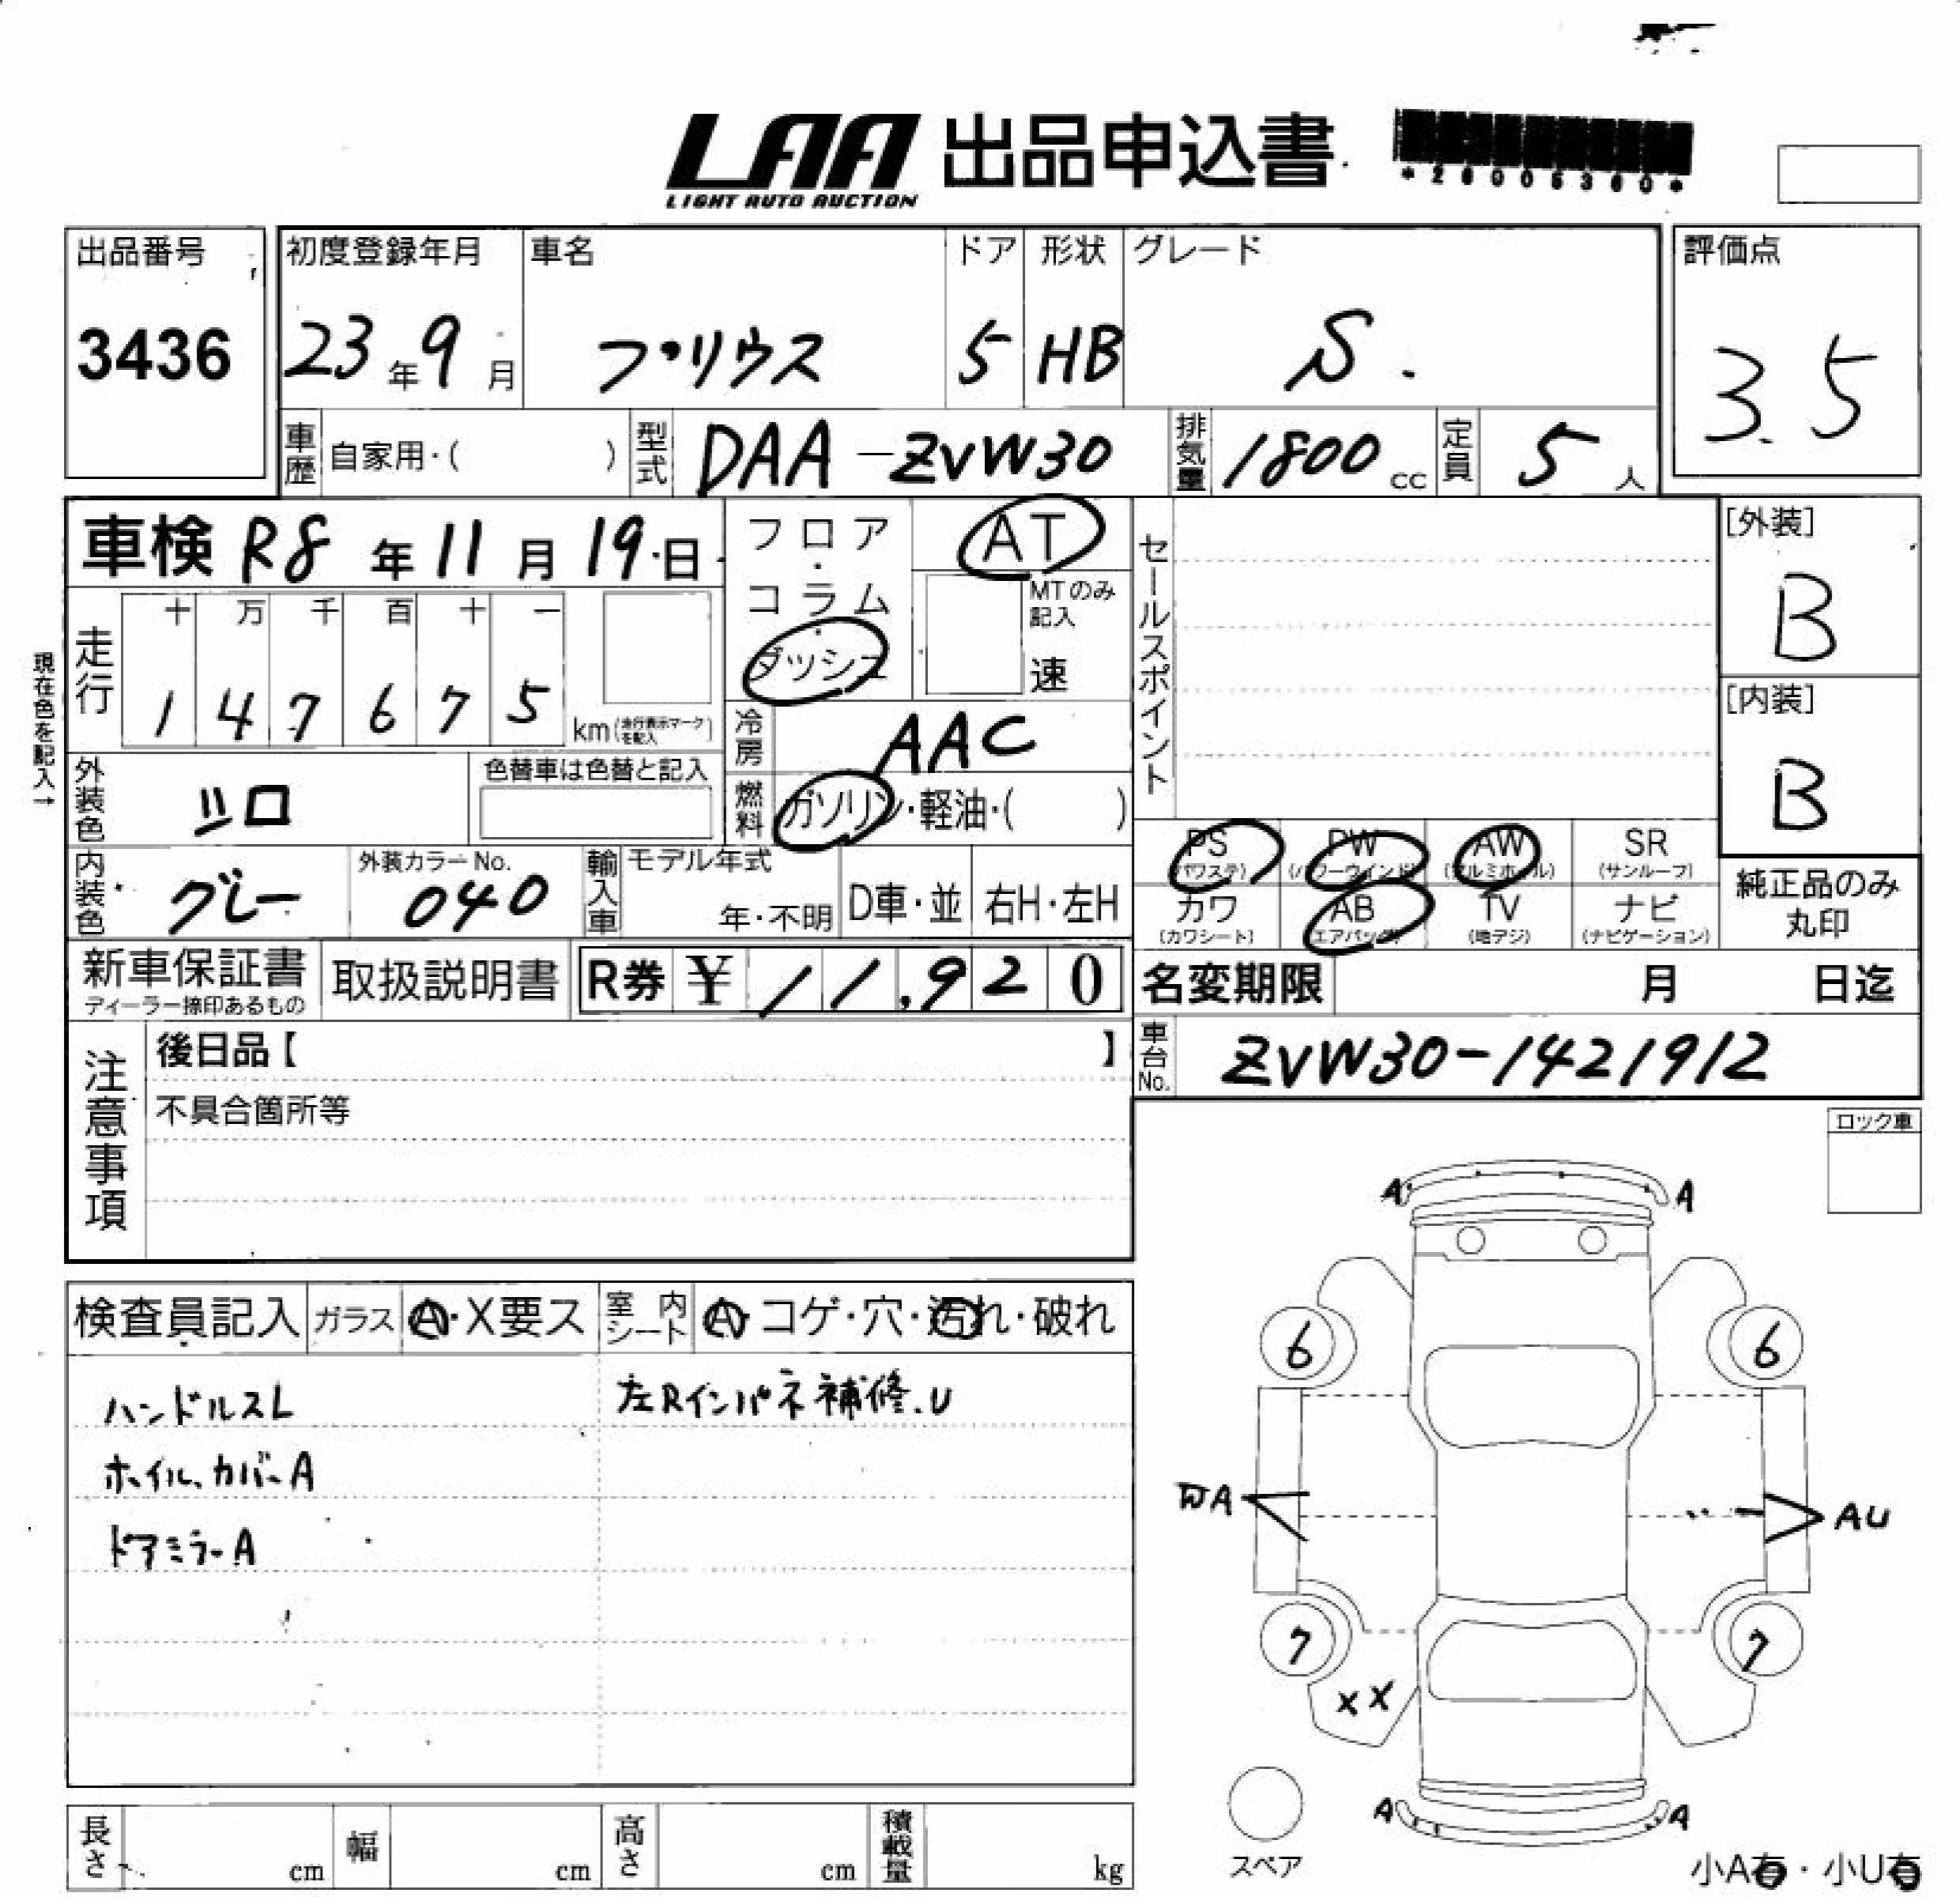 LAA 出品申込書
LIGHT AUTO AUCTION
*26005360*
出品番号
3436
初度登録年月
23年9月
車名
プリウス
ドア
5
形状
HB
グレード
S.
評価点
3.5
車歴 自家用・( )
型式 DAA-ZVW30
排気量 1800 cc
定員 5 人
車検 R8年11月19日
フロア・コラム・ダッシュ
AT
MTのみ記入
速
セールスポイント
[外装]
B
[内装]
B
現在色を記入→
走行
十 万 千 百 十 一
1 4 7 6 7 5
km(走行表示マークを記入)
冷房 AAC
燃料 ガソリン・軽油・( )
外装色 シロ
色替車は色替と記入
内装色 グレー
外装カラーNo.
040
輸入車
モデル年式
年・不明
D車・並 右H・左H
PS (パワステ)
PW (パワーウインド)
AW (アルミホイール)
SR (サンルーフ)
カワ (カワシート)
AB (エアバッグ)
TV (地デジ)
ナビ (ナビゲーション)
純正品のみ丸印
新車保証書
ディーラー捺印あるもの
取扱説明書
R券 ¥ 11,920
名変期限 月 日迄
車台No. ZVW30-1421912
注意事項
後日品【 】
不具合箇所等
ロック車
検査員記入
ガラス A・X要ス
室内シート A・コゲ・穴・汚れ・破れ
ハンドルスレ
左Rインパネ補修.U
ホイル、カバーA
ドアミラーA
A A
6 6
A AU
7 7
XX
A A
スペア
小A有・小U有
長さ cm
幅 cm
高さ cm
積載量 kg